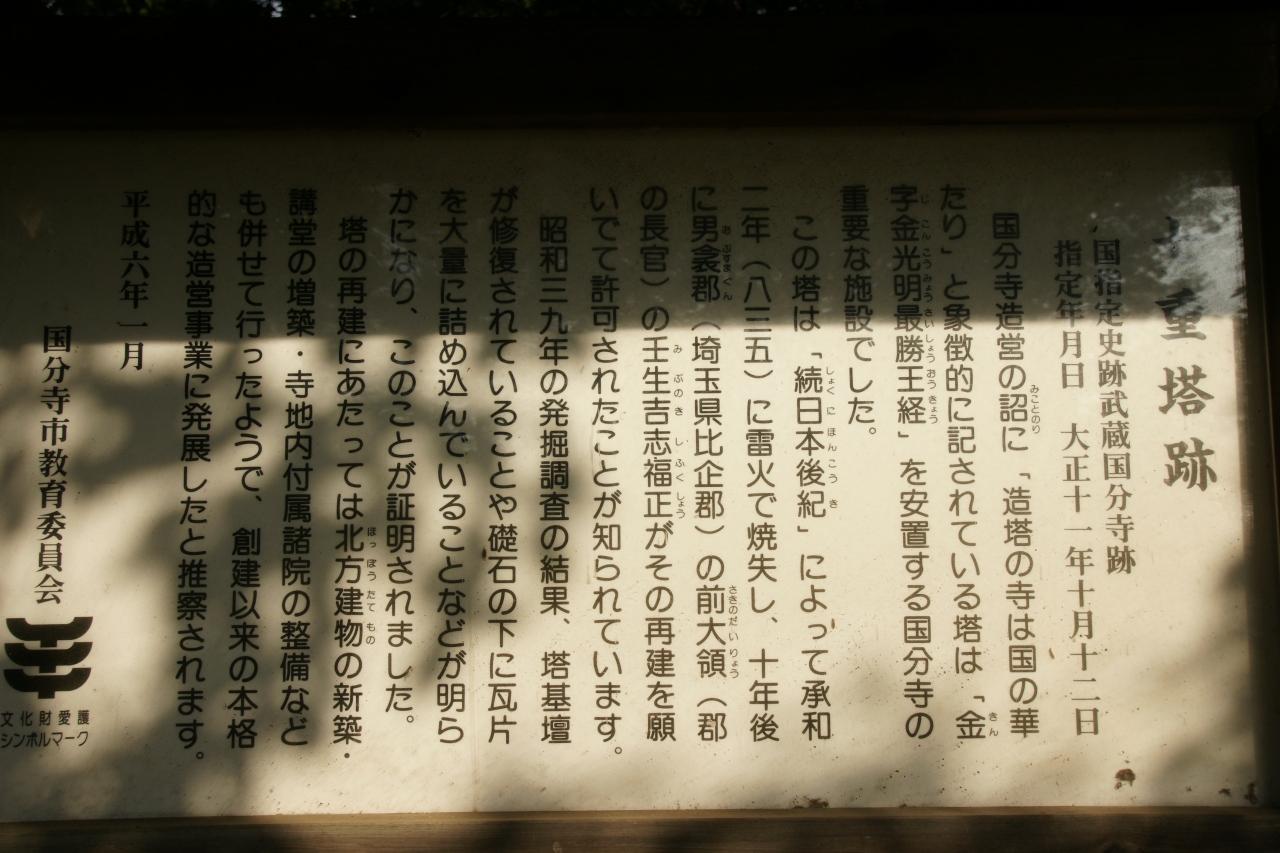 七重塔跡
国指定史跡武蔵国分寺跡
指定年月日　大正十一年十月十二日
みことのり
国分寺造営の詔に「造塔の寺は国の華
きん
たり」と象徴的に記されている塔は「金
じ こんこうみょうさいしょうおうきょう
字金光明最勝王経」を安置する国分寺の
重要な施設でした。
しょくにほんこうき
この塔は「続日本後紀」によって承和
二年（八三五）に雷火で焼失し、十年後
おぶすまぐん さきのだいりょう
に男衾郡（埼玉県比企郡）の前大領（郡
みぶのきしふくしょう
の長官）の壬生吉志福正がその再建を願
いでて許可されたことが知られています。
昭和三九年の発掘調査の結果、塔基壇
が修復されていることや礎石の下に瓦片
を大量に詰め込んでいることなどが明ら
かになり、このことが証明されました。
ほっぽうたてもの
塔の再建にあたっては北方建物の新築・
講堂の増築・寺地内付属諸院の整備など
も併せて行ったようで、創建以来の本格
的な造営事業に発展したと推察されます。
平成六年一月
国分寺市教育委員会
文化財愛護
シンボルマーク